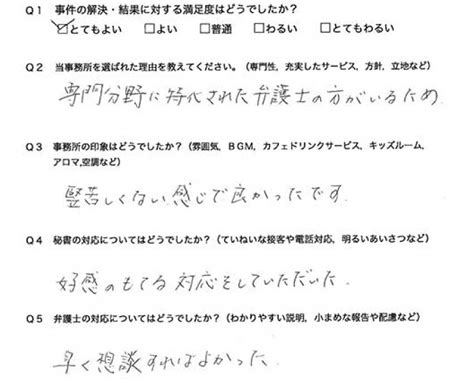 Q1 事件の解決・結果に対する満足度はどうでしたか?
☑とてもよい □よい □普通 □わるい □とてもわるい
Q2 当事務所を選ばれた理由を教えてください。(専門性，充実したサービス，方針，立地など)
専門分野に特化された弁護士の方がいるため
Q3 事務所の印象はどうでしたか?(雰囲気，BGM，カフェドリンクサービス，キッズルーム，
アロマ,空調など)
堅苦しくない感じで良かったです.
Q4 秘書の対応についてはどうでしたか?(ていねいな接客や電話対応，明るいあいさつなど)
好感のもてる対応をしていただいた.
Q5 弁護士の対応についてはどうでしたか?(わかりやすい説明，小まめな報告や配慮など)
早く想談すればよかった.